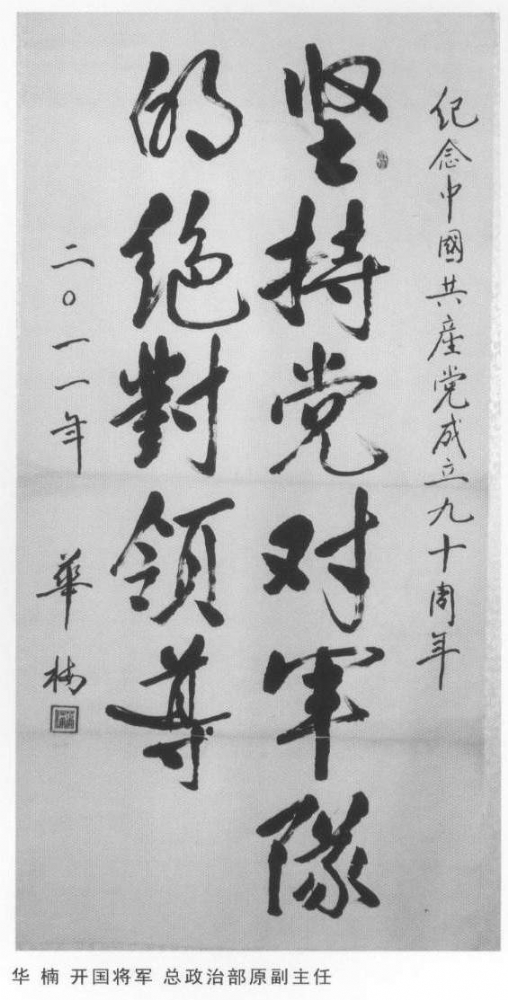 纪念中國共産党成立九十周年
坚持党对军隊
的絶對領導
二〇一一年
華楠
华 楠 开国将军 总政治部原副主任